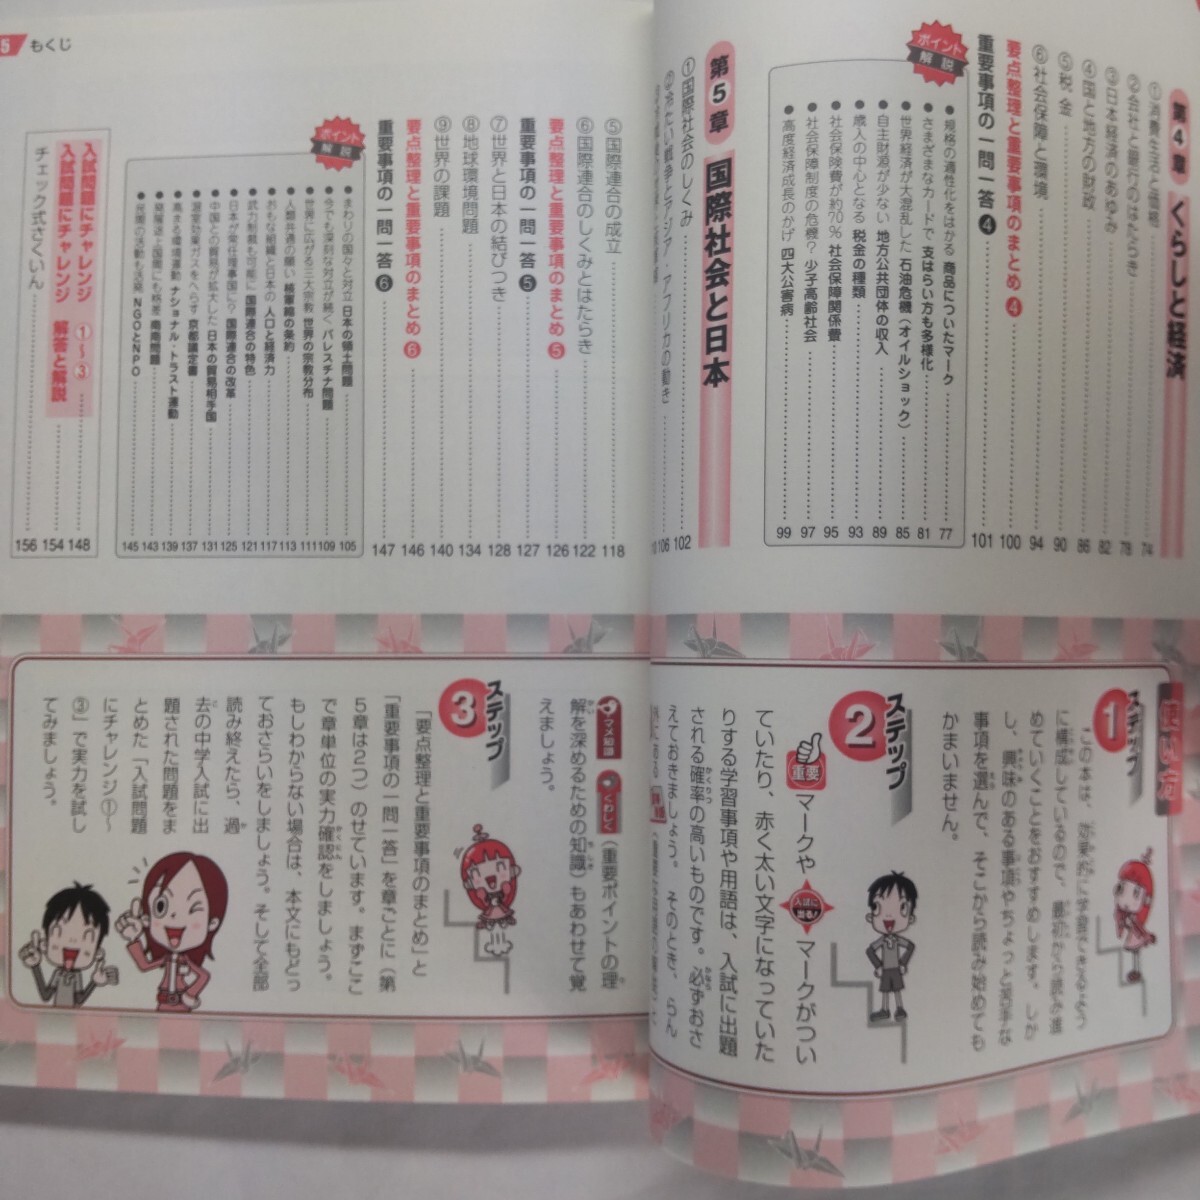 5 もくじ
第4章 くらしと経済
①消費生活と価格 74
②会社と銀行のはたらき 78
③日本経済のあゆみ 82
④国と地方の財政 86
⑤税金 90
⑥社会保障と環境 94
要点整理と重要事項のまとめ❹ 100
重要事項の一問一答❹ 101
ポイント解説
●規格の適性化をはかる 商品についたマーク 77
●さまざまなカードで 支はらい方も多様化 81
●世界経済が大混乱した 石油危機(オイルショック) 85
●自主財源が少ない 地方公共団体の収入 89
●歳入の中心となる 税金の種類 93
●社会保険費が約70% 社会保障関係費 95
●社会保障制度の危機? 少子高齢社会 97
●高度経済成長のかげ 四大公害病 99
第5章 国際社会と日本
①国際社会のしくみ 102
②冷たい戦争とアジア・アフリカの動き 106
⑤国際連合の成立 118
⑥国際連合のしくみとはたらき 122
要点整理と重要事項のまとめ❺ 126
重要事項の一問一答❺ 127
⑦世界と日本の結びつき 128
⑧地球環境問題 134
⑨世界の課題 140
要点整理と重要事項のまとめ❻ 146
重要事項の一問一答❻ 147
ポイント解説
●まわりの国々と対立 日本の領土問題 105
●今でも深刻な対立が続く パレスチナ問題 109
●世界に広がる三大宗教 世界の宗教分布 111
●人類共通の願い 核軍縮の条約 113
●おもな組織と日本の 人口と経済力 117
●武力制裁も可能に 国際連合の特色 121
●日本が常任理事国に? 国際連合の改革 125
●中国との貿易が拡大した 日本の貿易相手国 131
●温室効果ガスをへらす 京都議定書 137
●高まる環境運動 ナショナル・トラスト運動 139
●発展途上国間にも格差 南南問題 143
●民間の活動も活発 NGOとNPO 145
入試問題にチャレンジ ①〜③ 148
入試問題にチャレンジ 解答と解説 154
チェック式さくいん 156
使い方
ステップ1
この本は、効果的に学習できるよう
に構成しているので、最初から読み進
めていくことをおすすめします。しか
し、興味のある事項やちょっと苦手な
事項を選んで、そこから読み始めても
かまいません。
ステップ2
重要マークや入試に出る!マークがつい
ていたり、赤く太い文字になっていた
りする学習事項や用語は、入試に出題
される確率の高いものです。必ずおさ
えておきましょう。そのとき、らん
マメ知識 くわしく(重要ポイントの理
解を深めるための知識)もあわせて覚
えましょう。
ステップ3
「要点整理と重要事項のまとめ」と
「重要事項の一問一答」を章ごとに(第
5章は2つ)のせています。まずここ
で章単位の実力確認をしましょう。
もしわからない場合は、本文にもどっ
ておさらいをしましょう。そして全部
読み終えたら、過
去の中学入試に出
題された問題をま
とめた「入試問題
にチャレンジ①〜
③」で実力を試し
てみましょう。